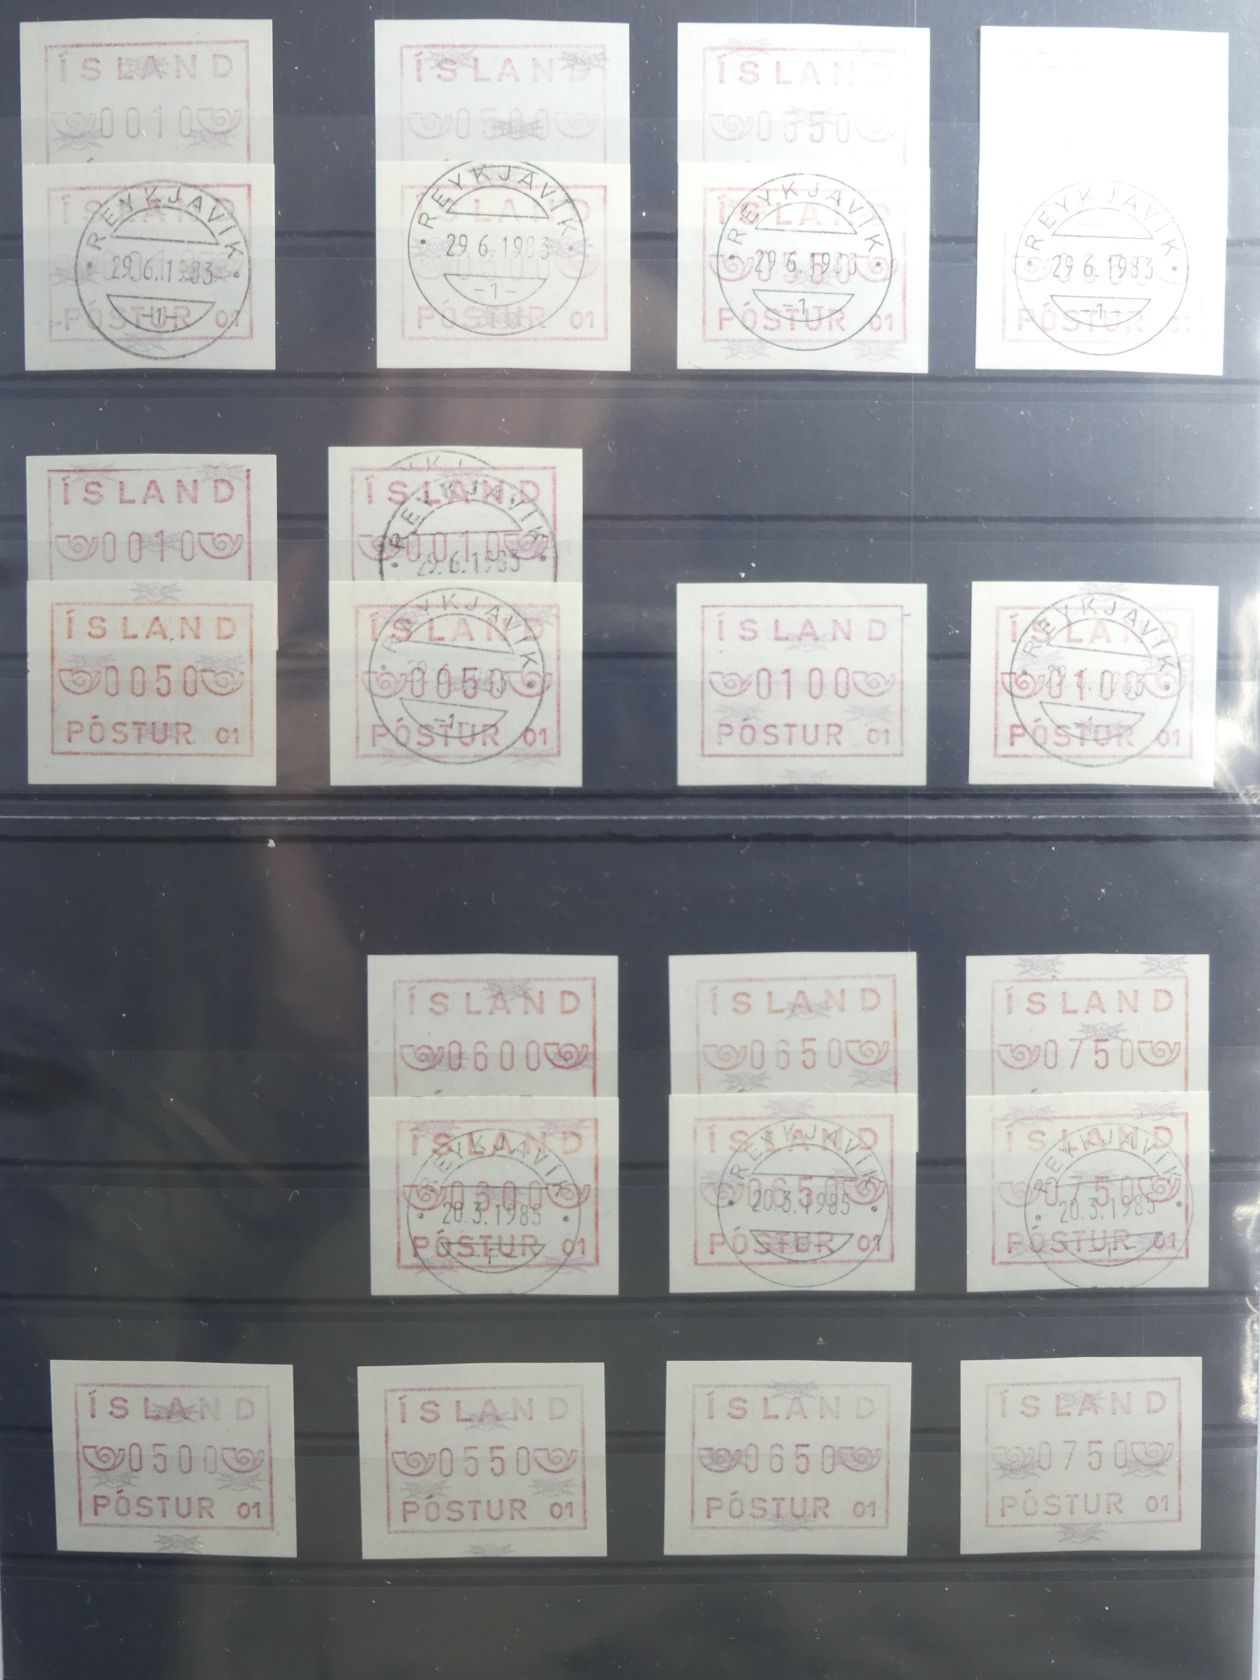 ÍSLAND
0010
REYKJAVÍK
29.6.1983
-1-
PÓSTUR 01
ÍSLAND
0500
REYKJAVÍK
29.6.1983
-1-
PÓSTUR 01
ÍSLAND
0550
ÍSLAND
REYKJAVÍK
29.6.1983
-1-
PÓSTUR 01
REYKJAVÍK
29.6.1983
-1-
PÓSTUR
ÍSLAND
0010
ÍSLAND
0050
PÓSTUR 01
ÍSLAND
0010
REYKJAVÍK
29.6.1983
ÍSLAND
REYKJAVÍK
0050
-1-
PÓSTUR 01
ÍSLAND
0100
PÓSTUR 01
REYKJAVÍK
0100
PÓSTUR 01
ÍSLAND
0600
ÍSLAND
REYKJAVÍK
0600
20.3.1985
PÓSTUR 01
ÍSLAND
0650
ÍSLAND
REYKJAVÍK
0650
20.3.1985
PÓSTUR 01
ÍSLAND
0750
ÍSLAND
REYKJAVÍK
0750
20.3.1985
PÓSTUR 01
ÍSLAND
0500
PÓSTUR 01
ÍSLAND
0550
PÓSTUR 01
ÍSLAND
0650
PÓSTUR 01
ÍSLAND
0750
PÓSTUR 01